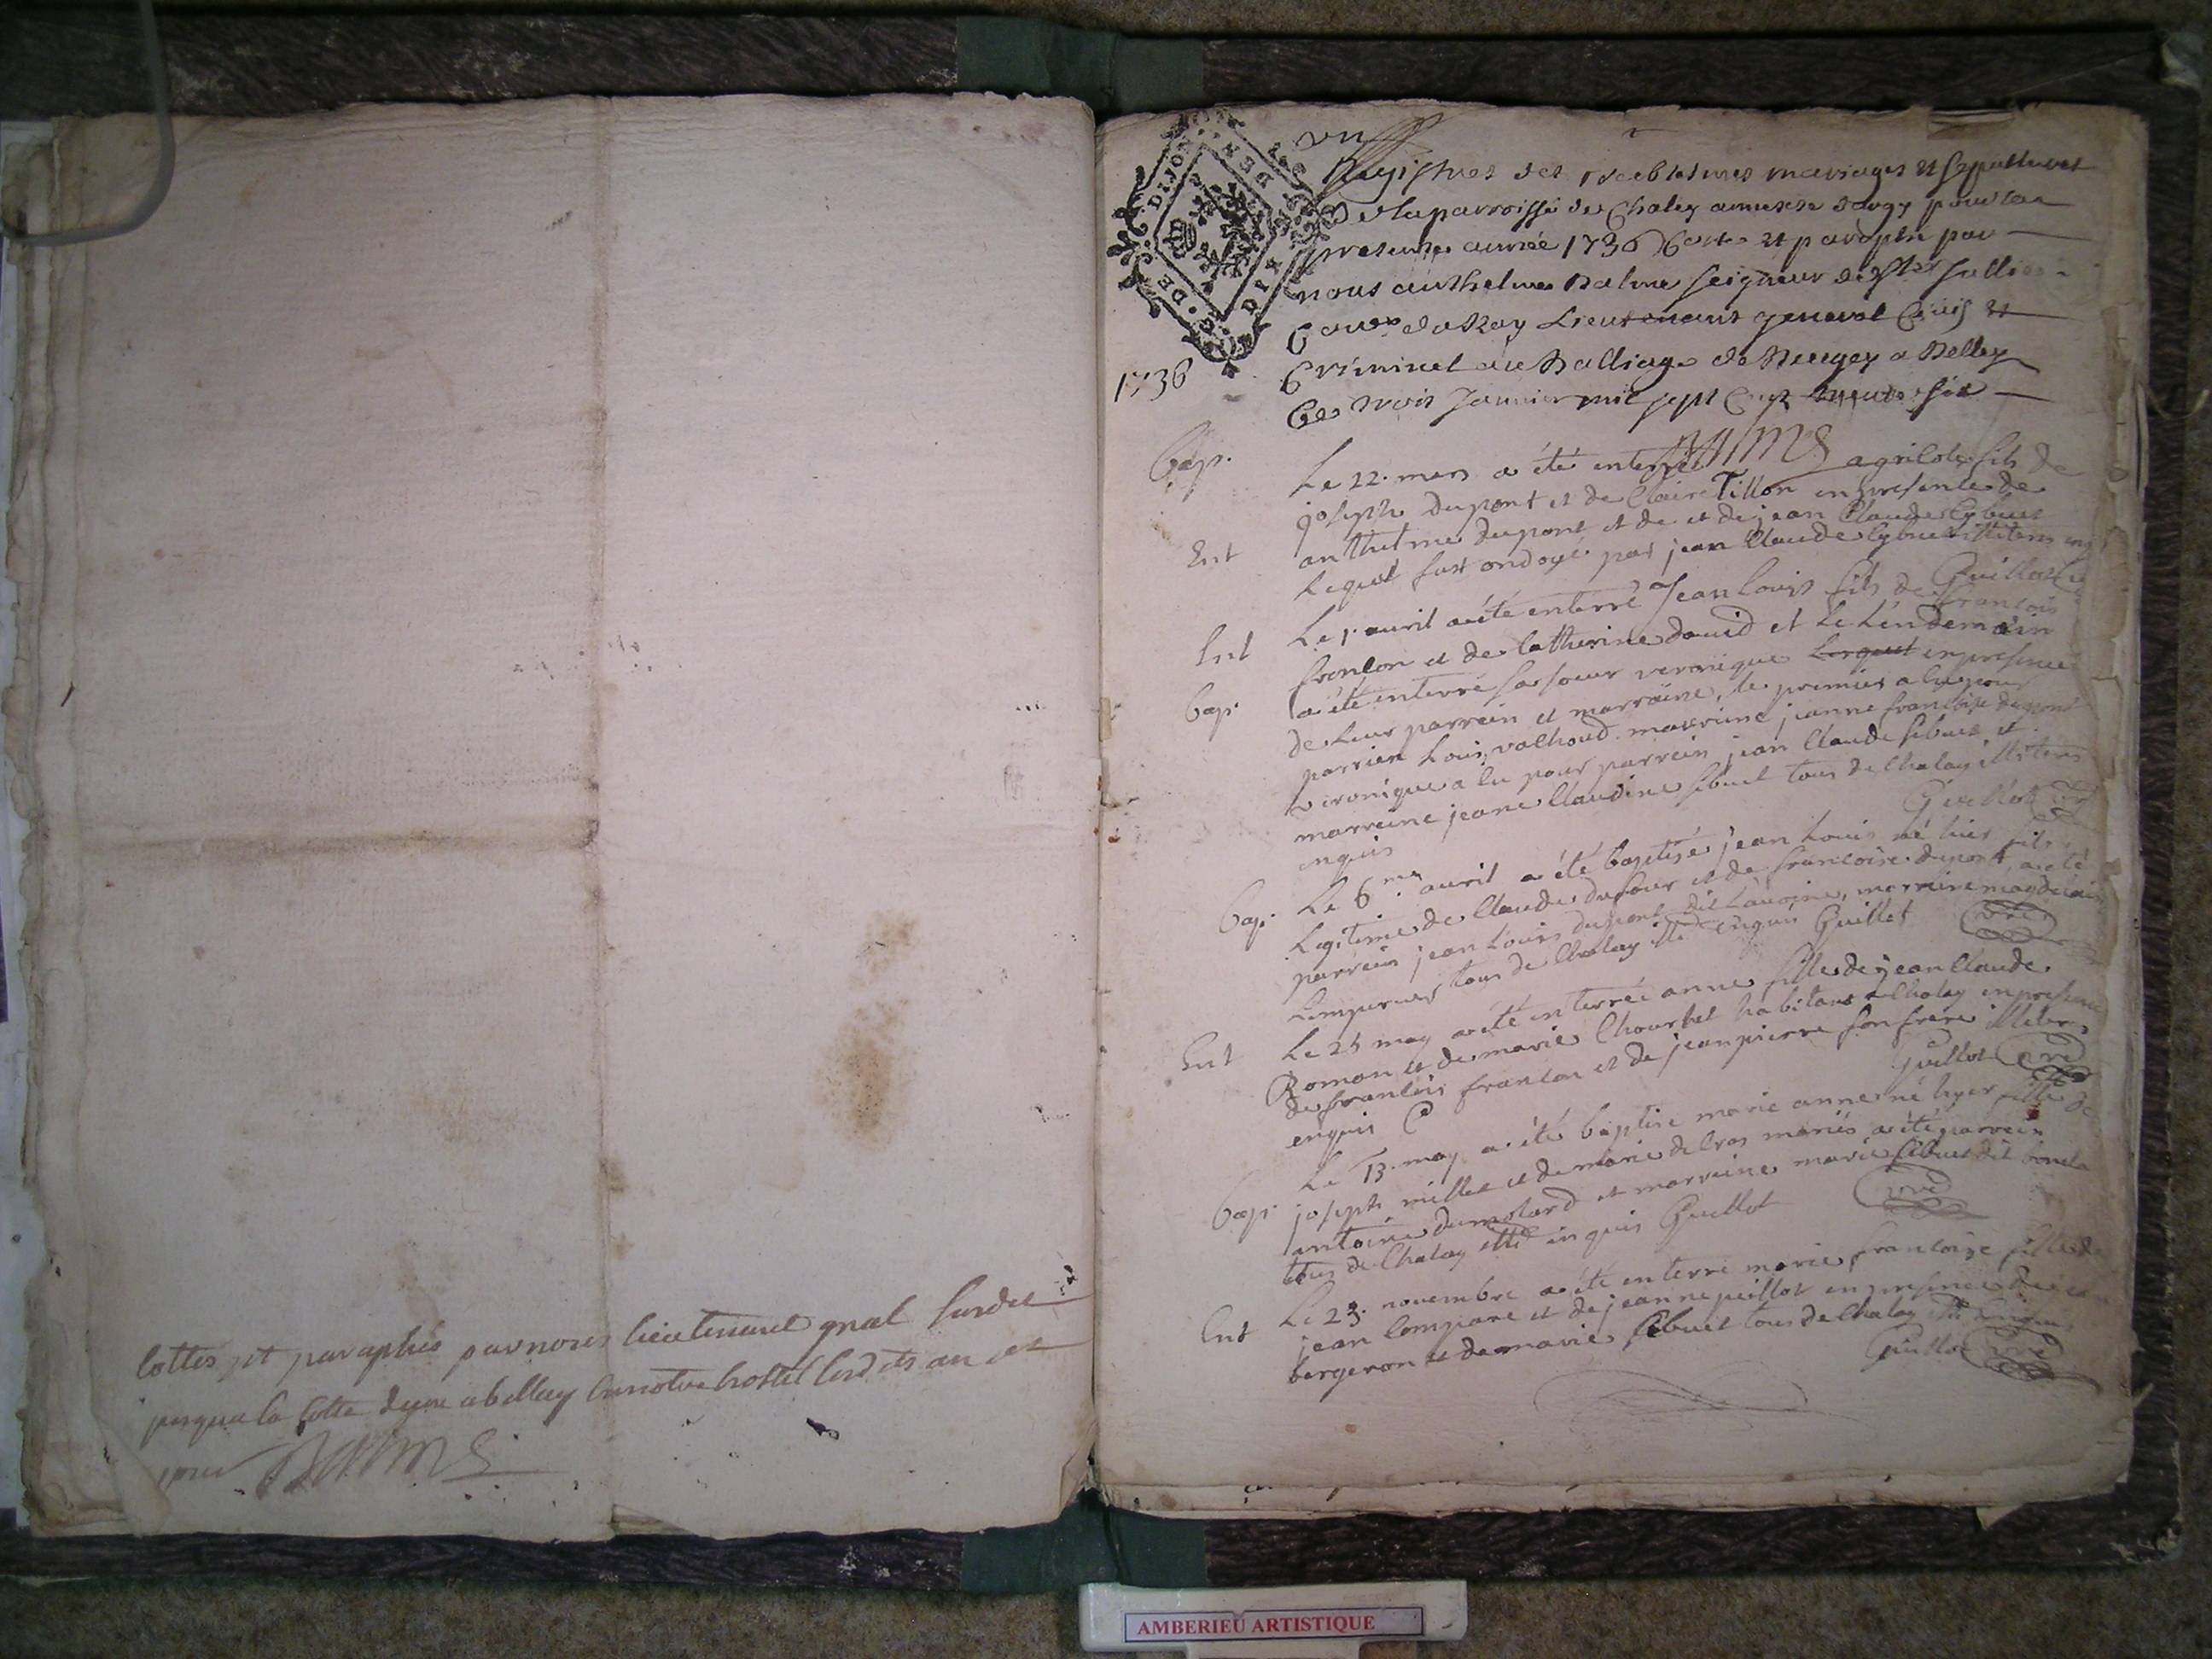 cottes et paraphés par nous lieutenant gnal susdit
jusqua la cotte dyme a belley en notre hostel lesdits an et
jour Balme
un
Registres des Baptesmes mariages et sepultures
de la parroisse de Chaley annexe dargy pour la
presente année 1736 Cotte et paraphé par
nous anthelme Balme seigneur de Ste Jullie
Conser du Roy Lieutenant general Civil et
1736
Criminel au Balliage de Beugey a Belley
Ce trois Janvier mil sept Cent trente six
Balme
Bap.
Le 22. mars a été enterré agricole fils de
joseph Dupont et de Claire Tillon en presence de
anthelme dupont et de et de jean Claude Sybuet
Ent
Lequel fust ondoyé par jean Claude Sybuet illiteres enq
Guillot
Ent
Le 1. avril a été enterré Jean Louis fils de francois
froncon et de Catherine david et Le Lendemain
Bap.
a été enterré sa soeur veronique Lequel en presence
de Leur parrein et marraine, le premier a eu pour
parrien Louis valhoud marreine jeanne francoise dupont
veronique a Eu pour parrein jean Claude sibuet et
marreine jeane Claudine sibuet tous de Chaley illiteres
enquis
Guillot vre
Bap.
Le 6me avril a été baptisé jean Louis né hier fils
Legitime de Claude dufour et de francoise dupont, a été
parrein jean Louis dupont dit , marreine magdelaine
Lempereur tous de Chaley ille enquis Guillot vre
Ent
Le 25 may a été enterrée anne fille de jean Claude
Roman et de marie Chourbet habitans a Chaley en presence
de francois francon et de jean pierre son frere illiteres
enquis
Guillot vre
Bap.
Le 13. may a été baptise marie anne né hyer fille de
joseph millet et de marie de Cros mariés a été parrein
antoine dumolard et marreine marie sibuet dit
tous de Chaley ille inquis Guillot vre
Ent
Le 23. novembre a été enterré marie francoise fille de
jean Compare et de jeanne peillot en presence de
bergeron et de marie sibuet tous de Chaley ille enquis
Guillot vre
G. DE DIJON
AMBERIEU ARTISTIQUE